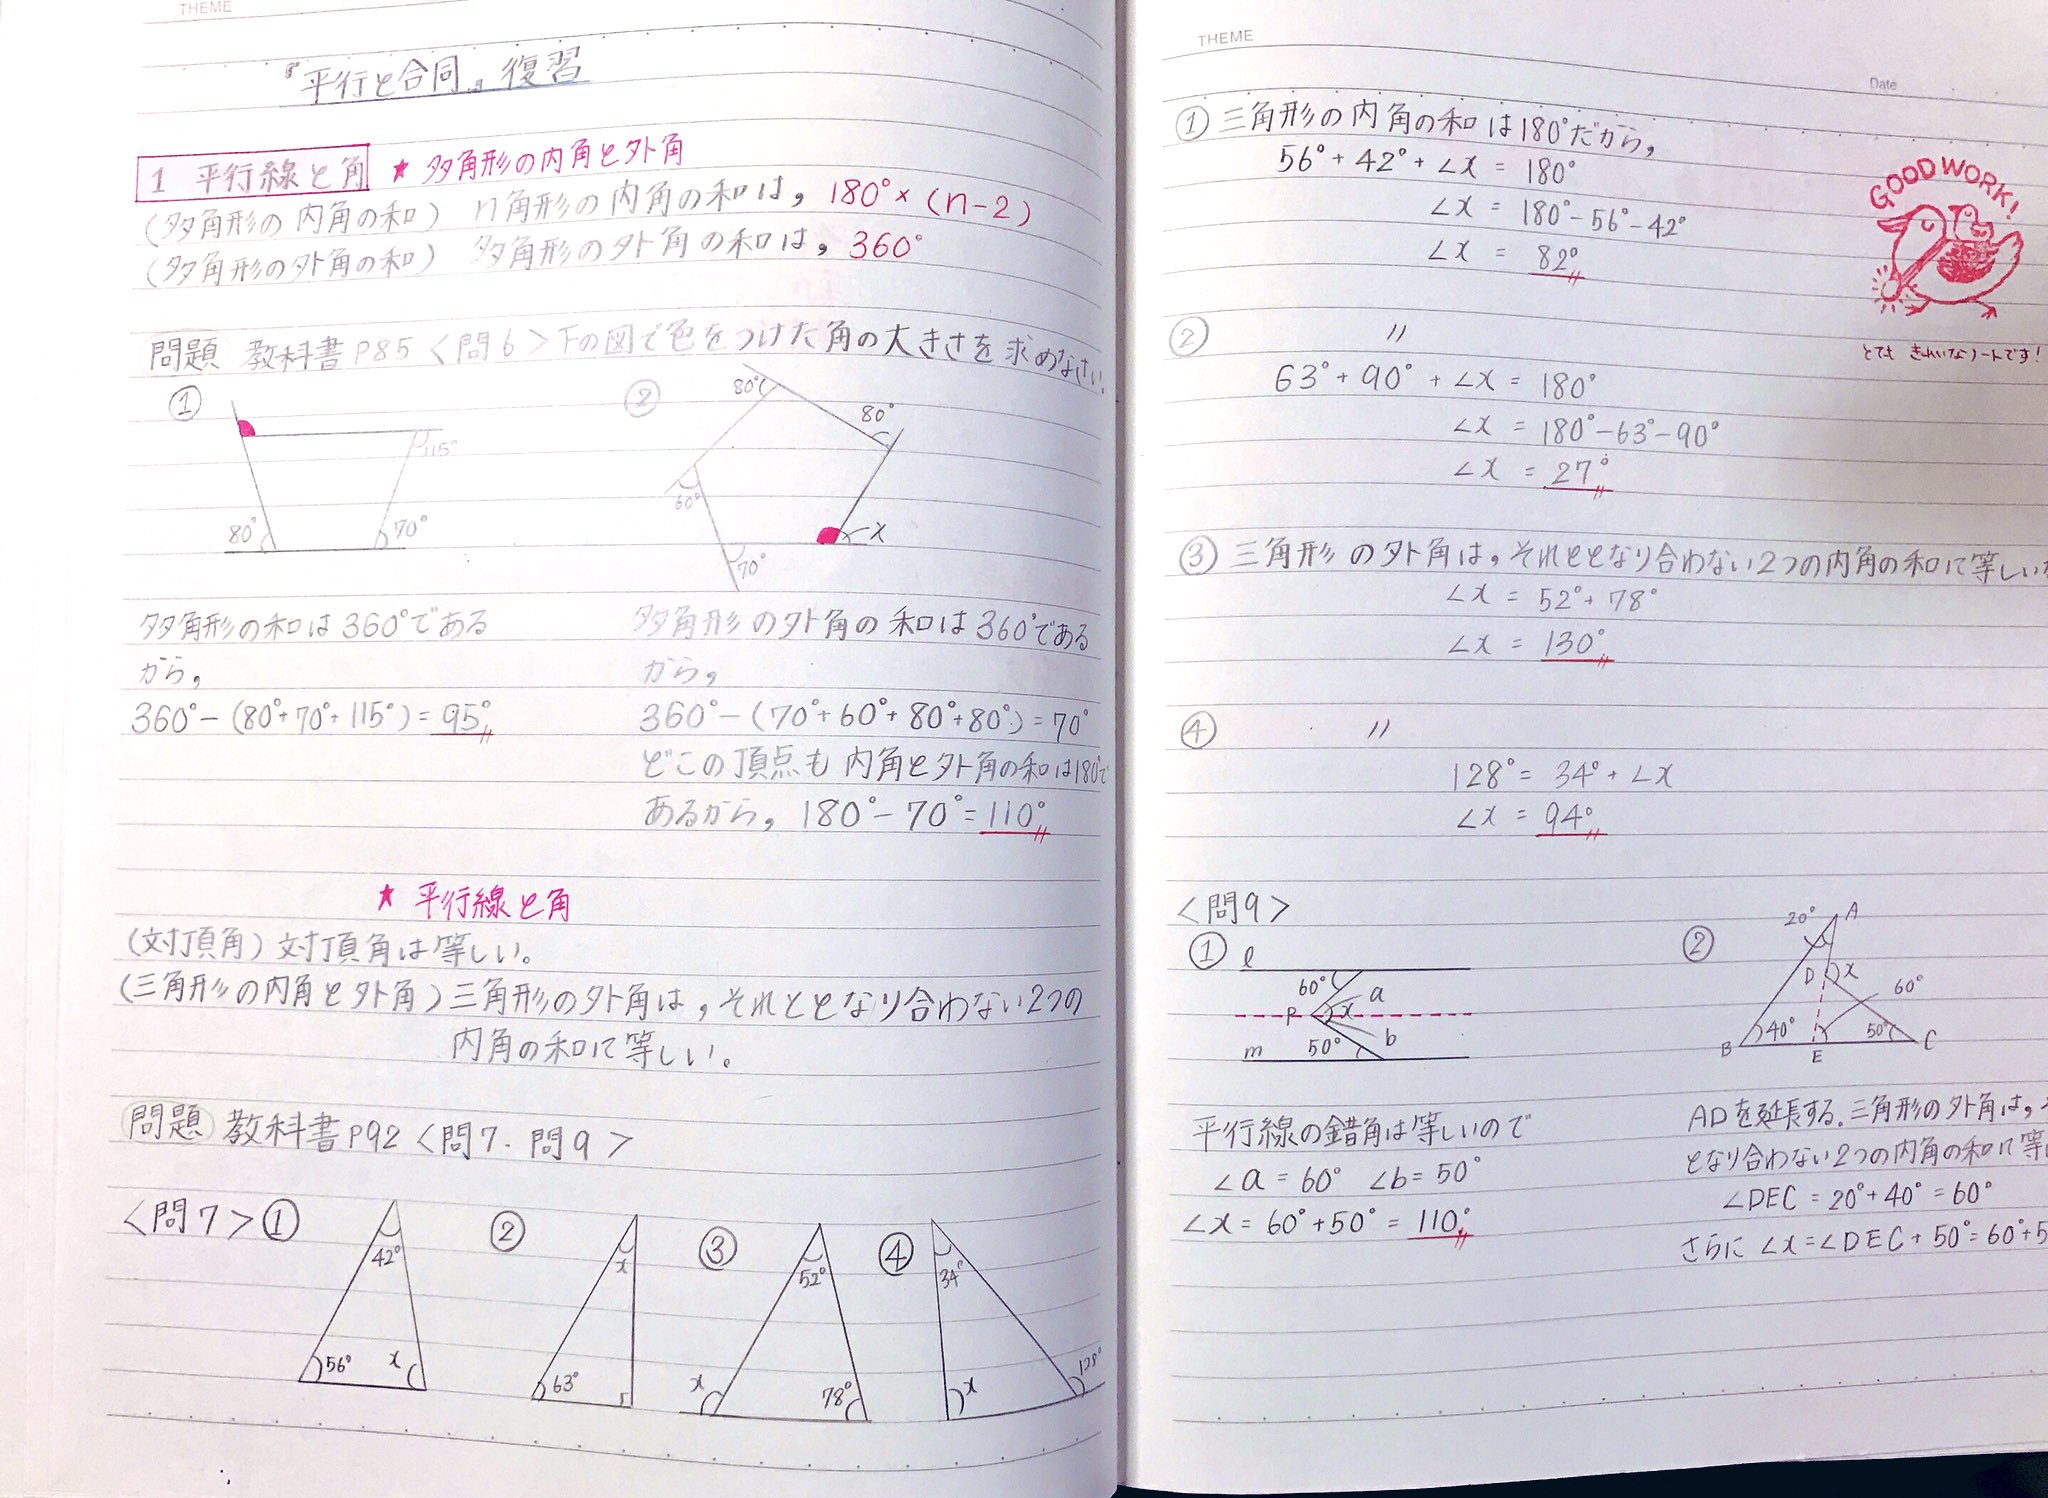 THEME
『平行と合同』復習
1 平行線と角 ★ 多角形の内角と外角
(多角形の内角の和) n角形の内角の和は, 180°×(n-2)
(多角形の外角の和) 多角形の外角の和は, 360°
問題 教科書P85<問6>下の図で色をつけた角の大きさを求めなさい.
①
115°
80°
70°
②
80°
80°
60°
70°
x
多角形の和は360°である
から,
360°-(80°+70°+115°)=95°
多角形の外角の和は360°である
から,
360°-(70°+60°+80°+80°)=70°
どこの頂点も内角と外角の和は180°で
あるから, 180°-70°=110°
★ 平行線と角
(対頂角) 対頂角は等しい。
(三角形の内角と外角) 三角形の外角は, それととなり合わない2つの
内角の和に等しい。
問題 教科書P92<問7.問9>
<問7>①
42°
56°
x
②
x
63°
③
52°
x
78°
④
34°
x
128°
THEME
Date
① 三角形の内角の和は180°だから,
56°+42°+∠x = 180°
∠x = 180°-56°-42°
∠x = 82°
GOOD WORK!
とても きれいなノートです!
② 〃
63°+90°+∠x = 180°
∠x = 180°-63°-90°
∠x = 27°
③ 三角形の外角は, それととなり合わない2つの内角の和に等しい
∠x = 52°+78°
∠x = 130°
④ 〃
128°= 34°+∠x
∠x = 94°
<問9>
①
ℓ
60°
a
P
x
b
50°
m
②
20°
A
D
x
60°
40°
50°
B
E
C
平行線の錯角は等しいので
∠a = 60° ∠b = 50°
∠x = 60°+50° = 110°
ADを延長する. 三角形の外角は,
となり合わない2つの内角の和に等
∠DEC = 20°+40° = 60°
さらに ∠x=∠DEC+50°=60°+5